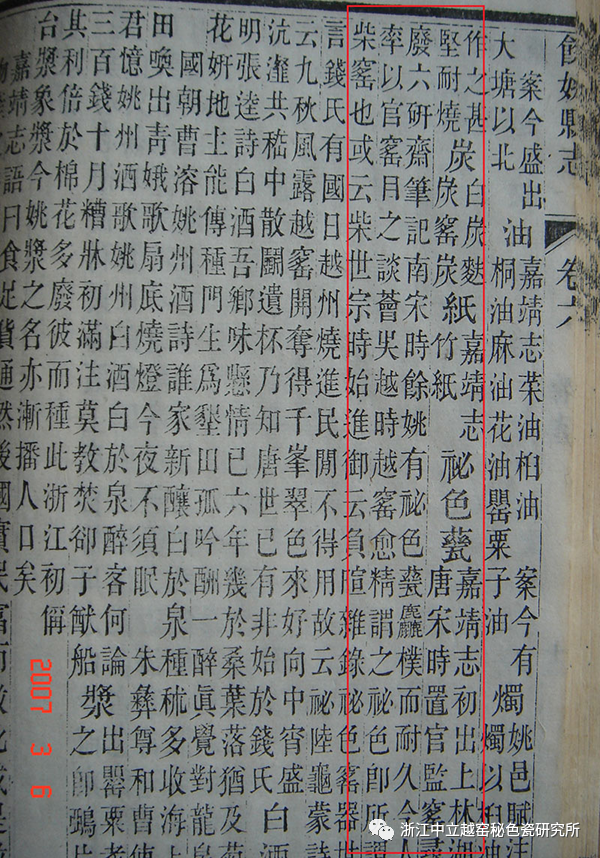 餘姚縣志 卷六
案今盛出 油 嘉靖志菜油桕油 案今有 燭 姚邑賦注
大塘以北 桐油麻油花油罌粟子油 燭以桕油
作之甚 炭 白炭麩 紙 嘉靖志 祕色甆 嘉靖志初出上林湖
堅耐燒 炭窰炭 竹紙 唐宋時置官監窰尋
廢六研齋筆記南宋時餘姚有祕色甆麤樸而耐久今人
率以官窰目之談薈吳越時越窰愈精謂之祕色卽所謂
柴窰也或云柴世宗時始進御云負暄雜錄祕色窰器世
言錢氏有國日越州燒進民閒不得用故云祕陸龜蒙詩
云九秋風露越窰開奪得千峯翠色來好向中宵盛
沆瀣共嵇中散鬭遺杯乃知唐世已有非始於錢氏 白酒
明張逵詩白酒吾鄉味懸情已六年幾於桑葉落猶及菊
花妍地主能傳種門生爲墾田孤吟酬一醉眞覺對龍泉
國朝曹溶姚州酒詩誰家新釀白於泉種秫多收海上
田喚出靑娥歌扇底燒燈今夜不須眠 朱彝尊和曹使
君憶姚州酒歌姚州白酒白於泉醉客何論
三百錢十月糟牀初滿注莫教焚卻子猷船 漿 出罌粟者
之卽鴉片
其利倍於棉花多廢彼而種此浙江初偁
台漿象漿今姚漿之名亦漸播人口矣
嘉靖志語曰食足貨通然後國實民富而教化成是
2007 3 6
浙江中立越窑秘色瓷研究所